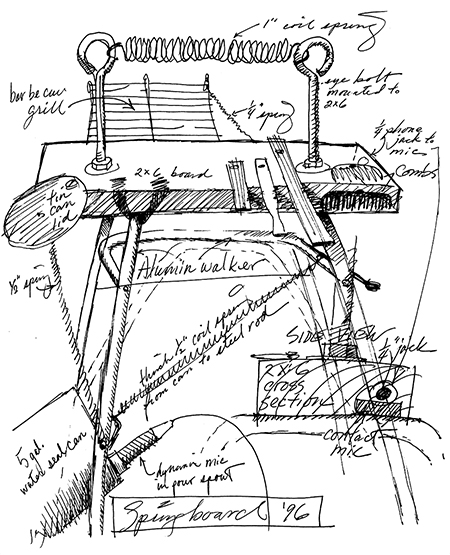 1" coil spring
bar be cue
grill
eye bolt
mounted to
2x6
1/4" spring
1/4" phono
jack to
mic
2x6 board
combs
tin
can
lid
1/2" spring
Alumin walker
1/2" coil spring
from can to steel rod
SIDE VIEW
1/4" jack
2x6
cross
section
contact
mic
5 gal.
water seal can
dynamic mic
in pour spout
Springboard '96